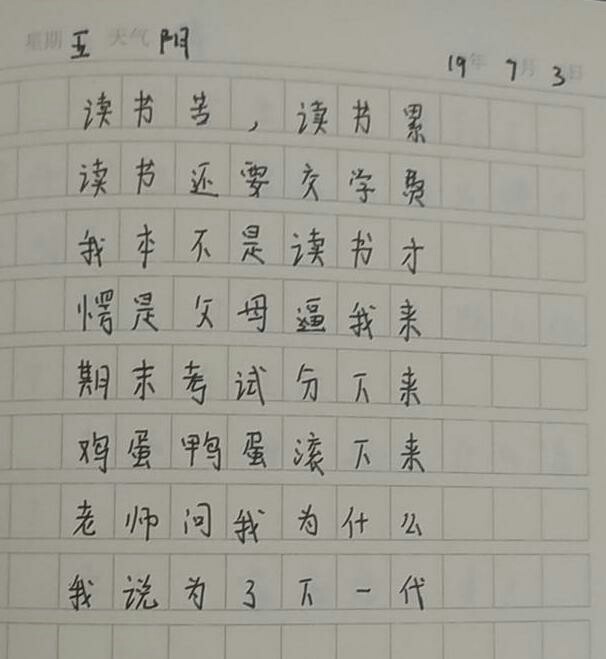 星期 五 天气 阴
19年 7月 3日
读书苦，读书累
读书还要交学费
我本不是读书才
愣是父母逼我来
期末考试分下来
鸡蛋鸭蛋滚下来
老师问我为什么
我说为了下一代